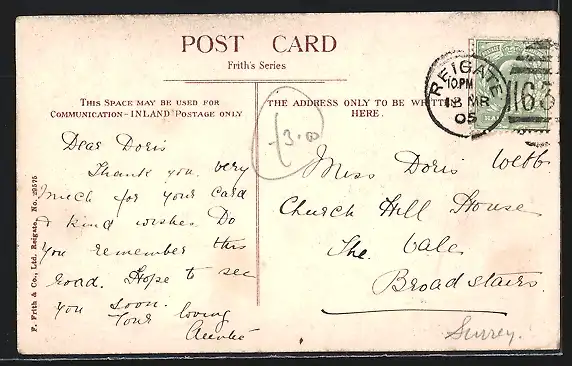 POST CARD
Frith's Series
THIS SPACE MAY BE USED FOR
COMMUNICATION-INLAND POSTAGE ONLY
THE ADDRESS ONLY TO BE WRITTE
HERE.
REIGATE
10.PM
18 MR
05
163
£3.00
Dear Doris
Thank you very
much for your card
& kind wishes. Do
you remember this
road. Hope to see
you soon.
Your loving
Auntie
Miss Doris Webb
Church Hill House
The Vale
Broadstairs
Surrey.
F. Frith & Co., Ltd. Reigate. No. 29575